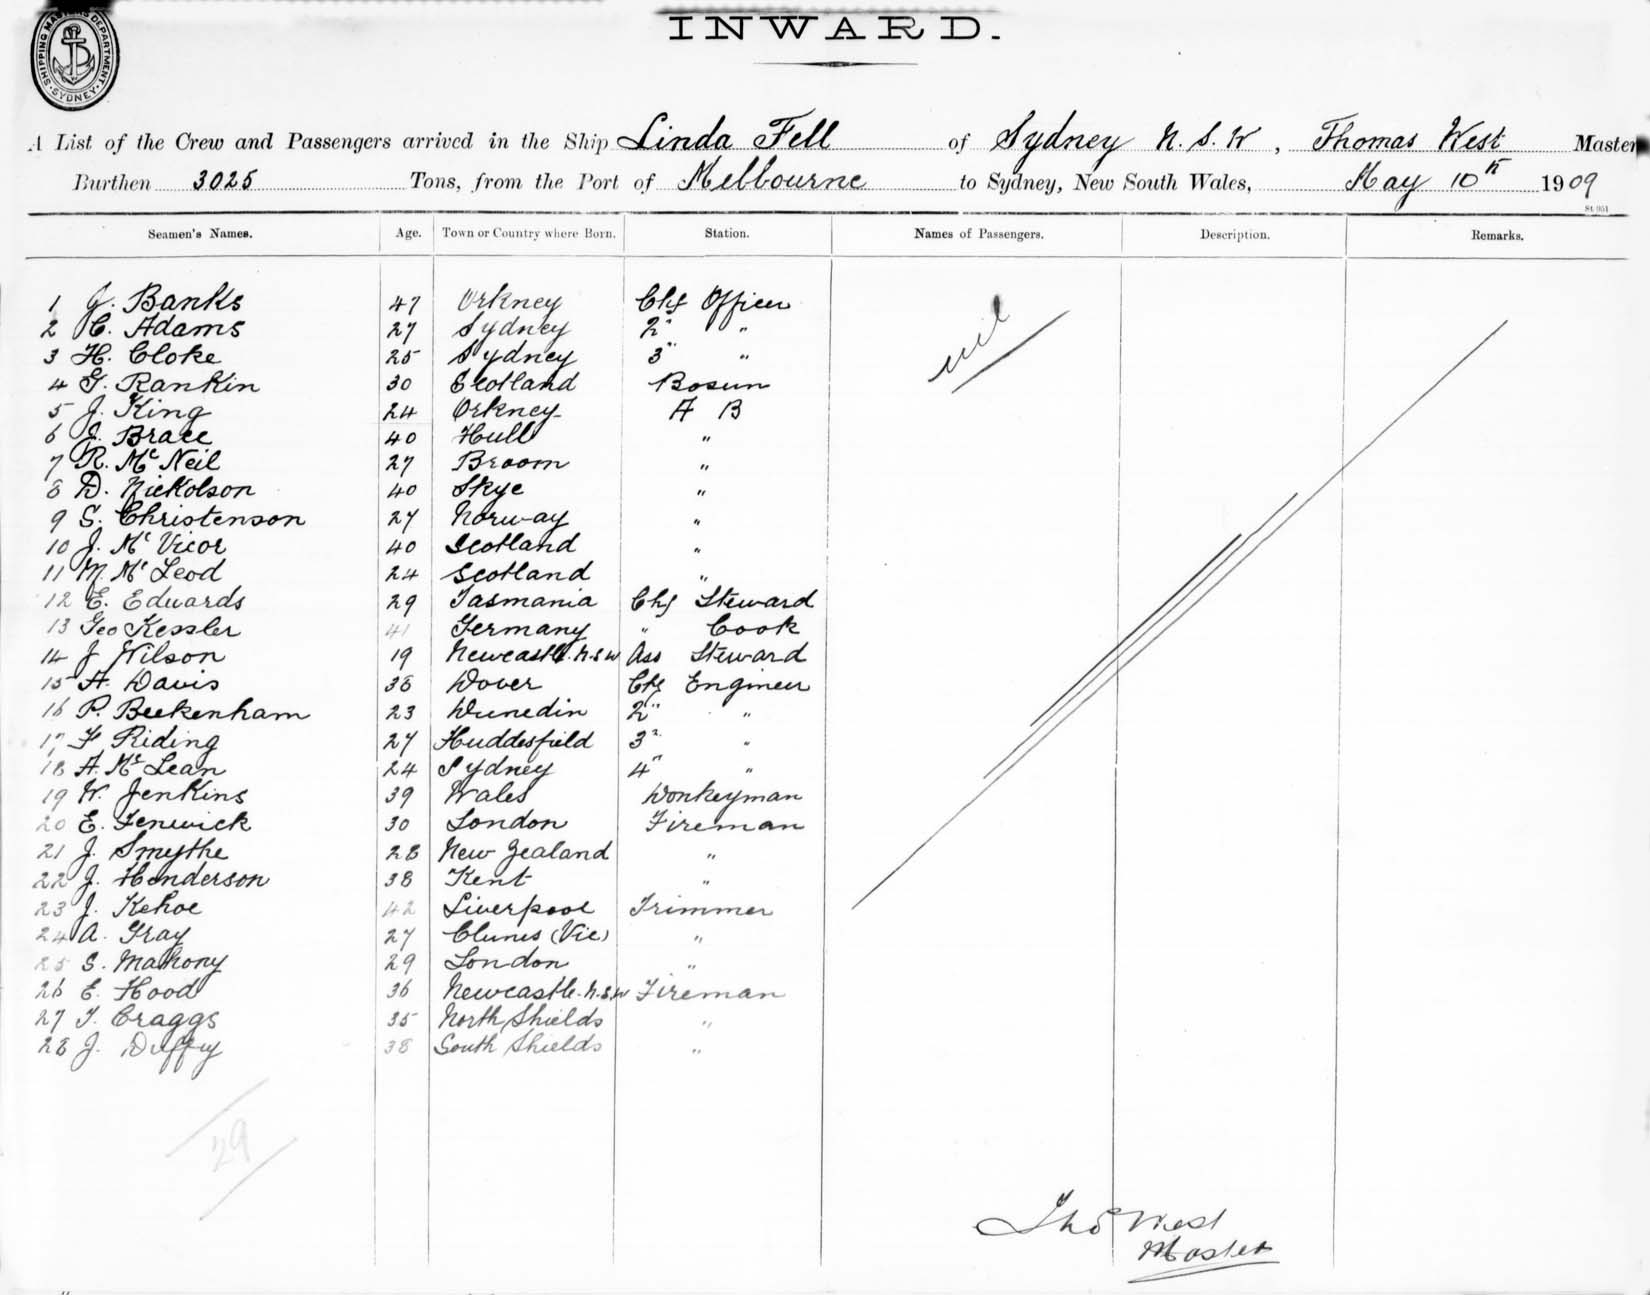 SHIPPING MASTER'S DEPARTMENT. SYDNEY
INWARD.
A List of the Crew and Passengers arrived in the Ship Linda Fell of Sydney N.S.W, Thomas West Master
Burthen 3025 Tons, from the Port of Melbourne to Sydney, New South Wales, May 10th 1909
St 951
Seamen's Names. Age. Town or Country where Born. Station. Names of Passengers. Description. Remarks.
1 J. Banks 47 Orkney Chf Officer
2 C. Adams 27 Sydney 2" "
3 H. Cloke 25 Sydney 3" " nil
4 G. Rankin 30 Scotland Bosun
5 J. King 24 Orkney A B
6 J. Brace 40 Hull "
7 R. McNeil 27 Broom "
8 D. Nickolson 40 Skye "
9 S. Christenson 27 Norway "
10 J. McVicor 40 Scotland "
11 M. McLeod 24 Scotland "
12 E. Edwards 29 Tasmania Chf Steward
13 Geo Kessler 41 Germany " Cook
14 J Wilson 19 Newcastle. N.S.W Ass Steward
15 A. Davis 38 Dover Chf Engineer
16 P. Beekenham 23 Dunedin 2" "
17 F Riding 27 Huddesfield 3" "
18 A. McLean 24 Sydney 4" "
19 W. Jenkins 39 Wales Donkeyman
20 E. Fenwick 30 London Fireman
21 J. Smythe 28 New Zealand "
22 J. Henderson 38 Kent "
23 J. Kehoe 42 Liverpool Trimmer
24 A. Gray 27 Clunes (Vic) "
25 S. Mahony 29 London "
26 E. Hood 36 Newcastle. N.S.W Fireman
27 T. Craggs 35 North Shields "
28 J. Duffy 38 South Shields "
29
Thos West
Master